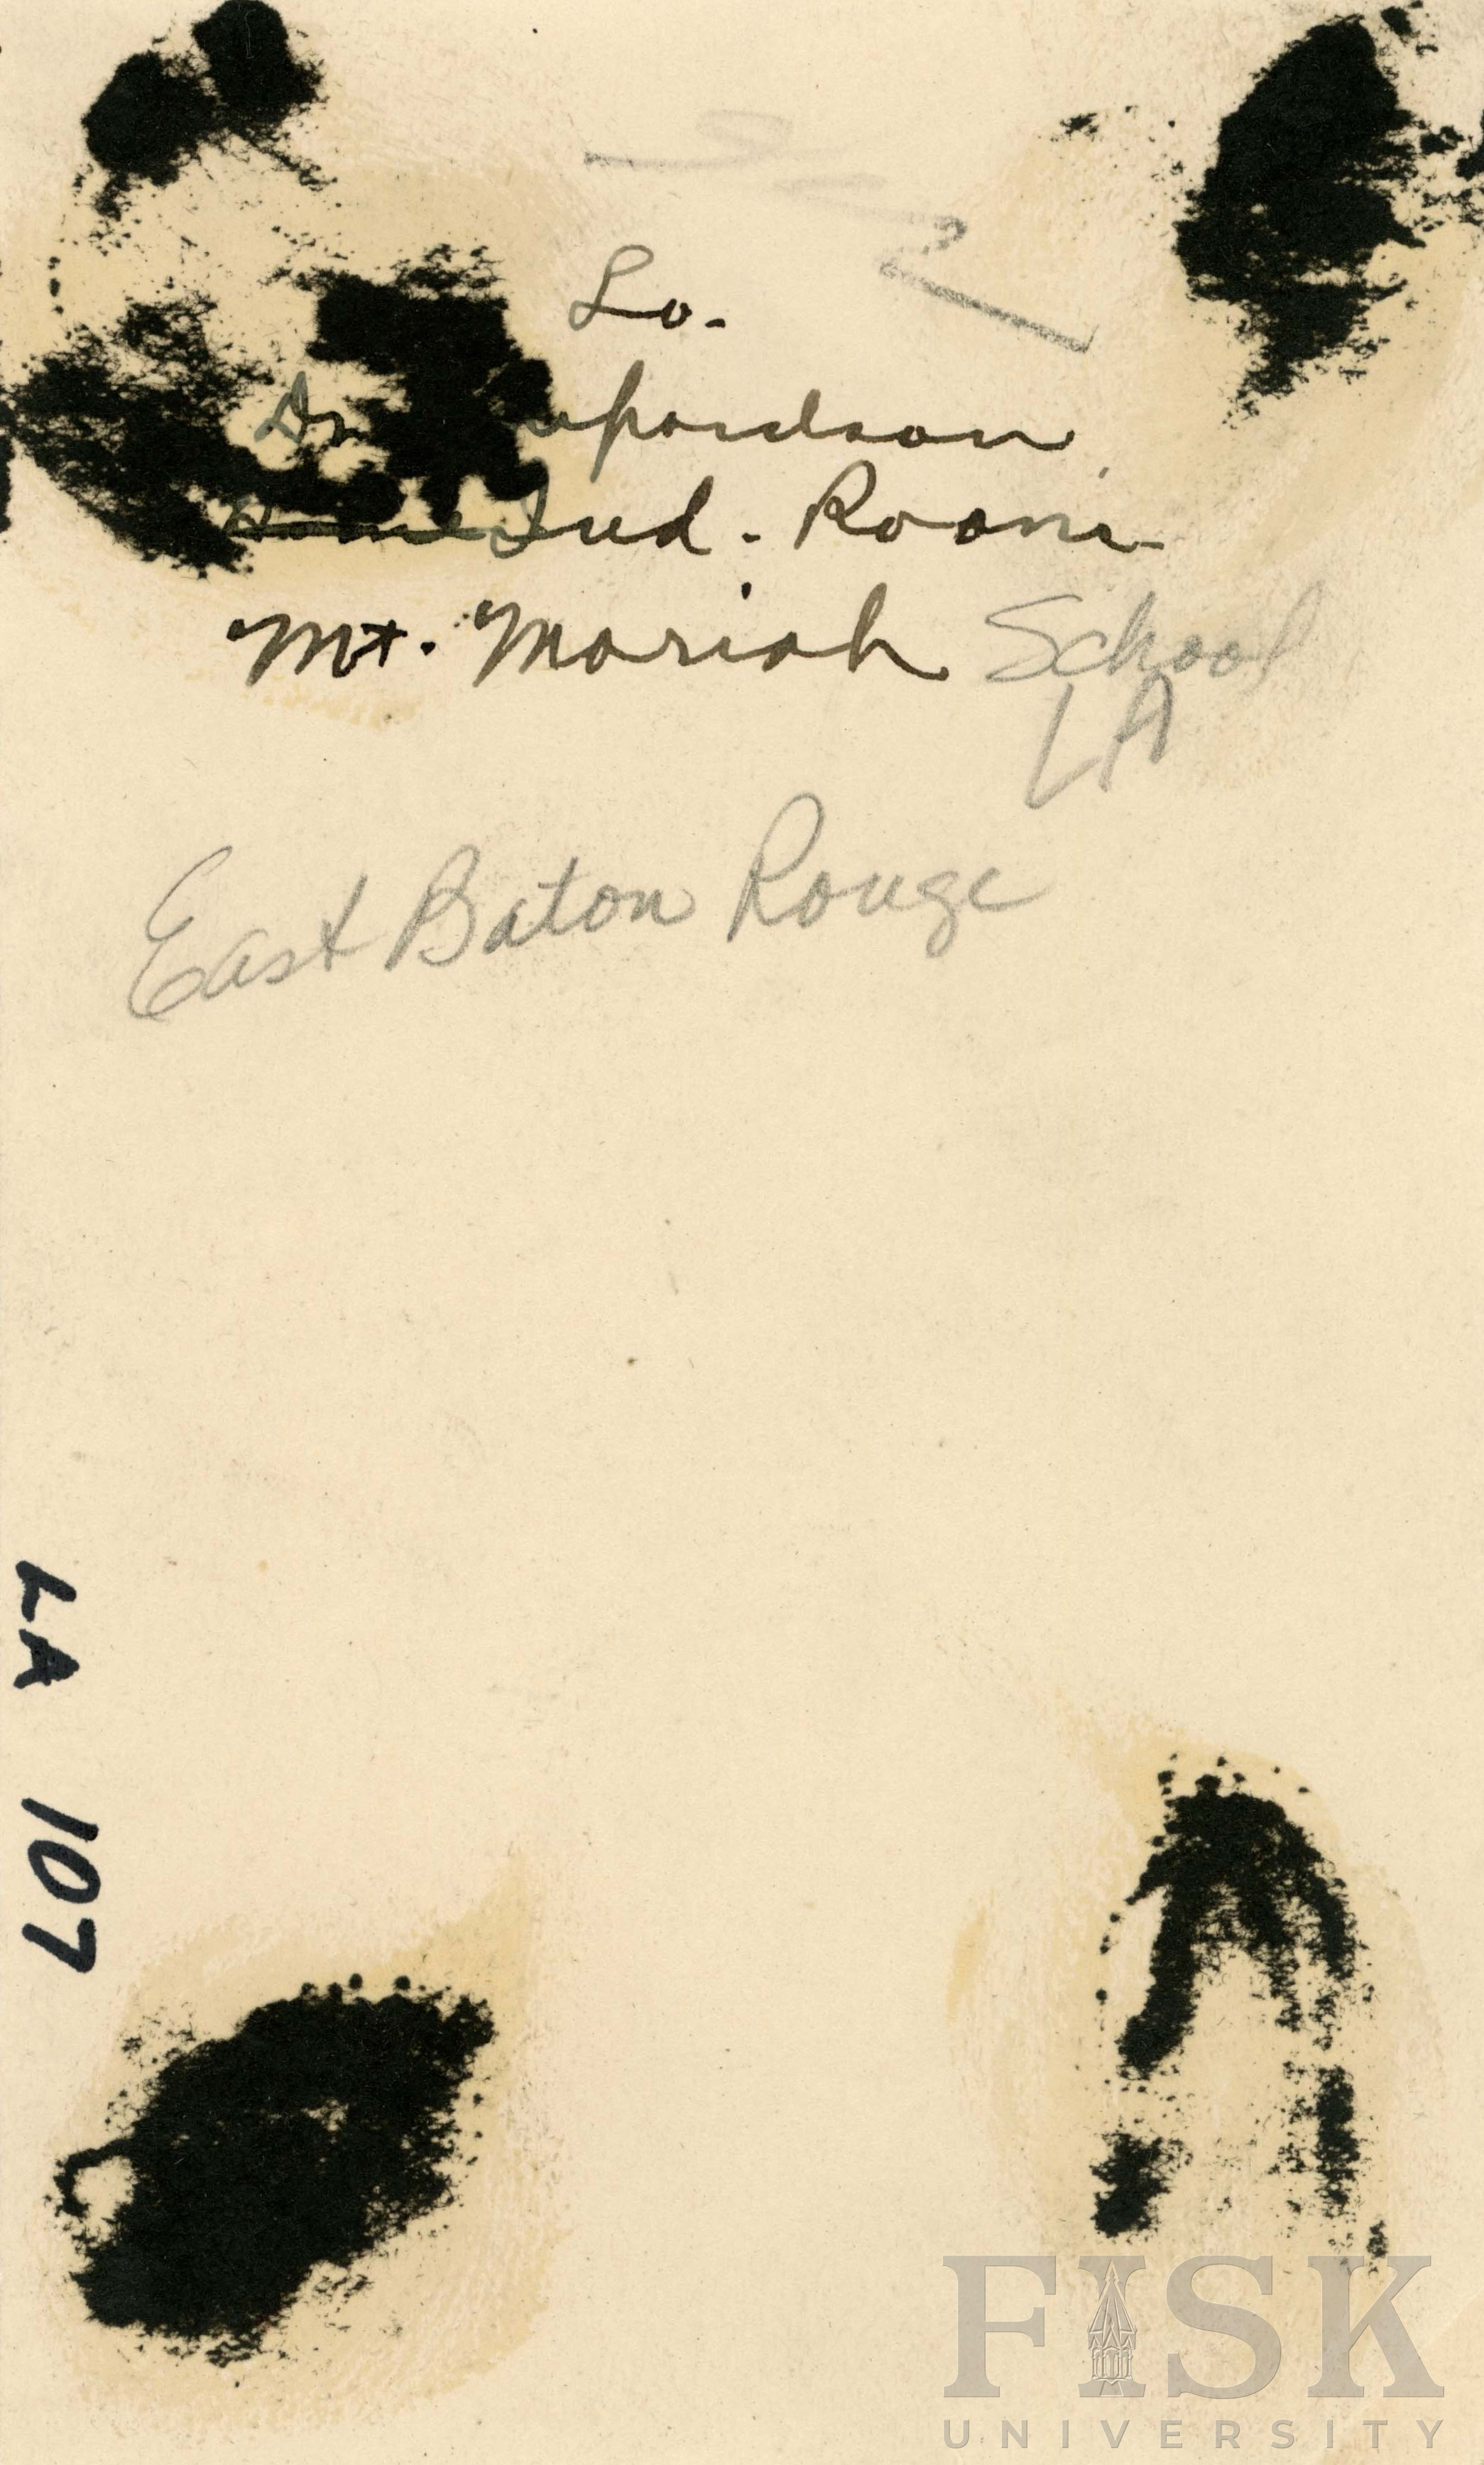 La.
Ind. Room
Mt. Moriah School
LA
East Baton Rouge
LA 107
FISK
UNIVERSITY